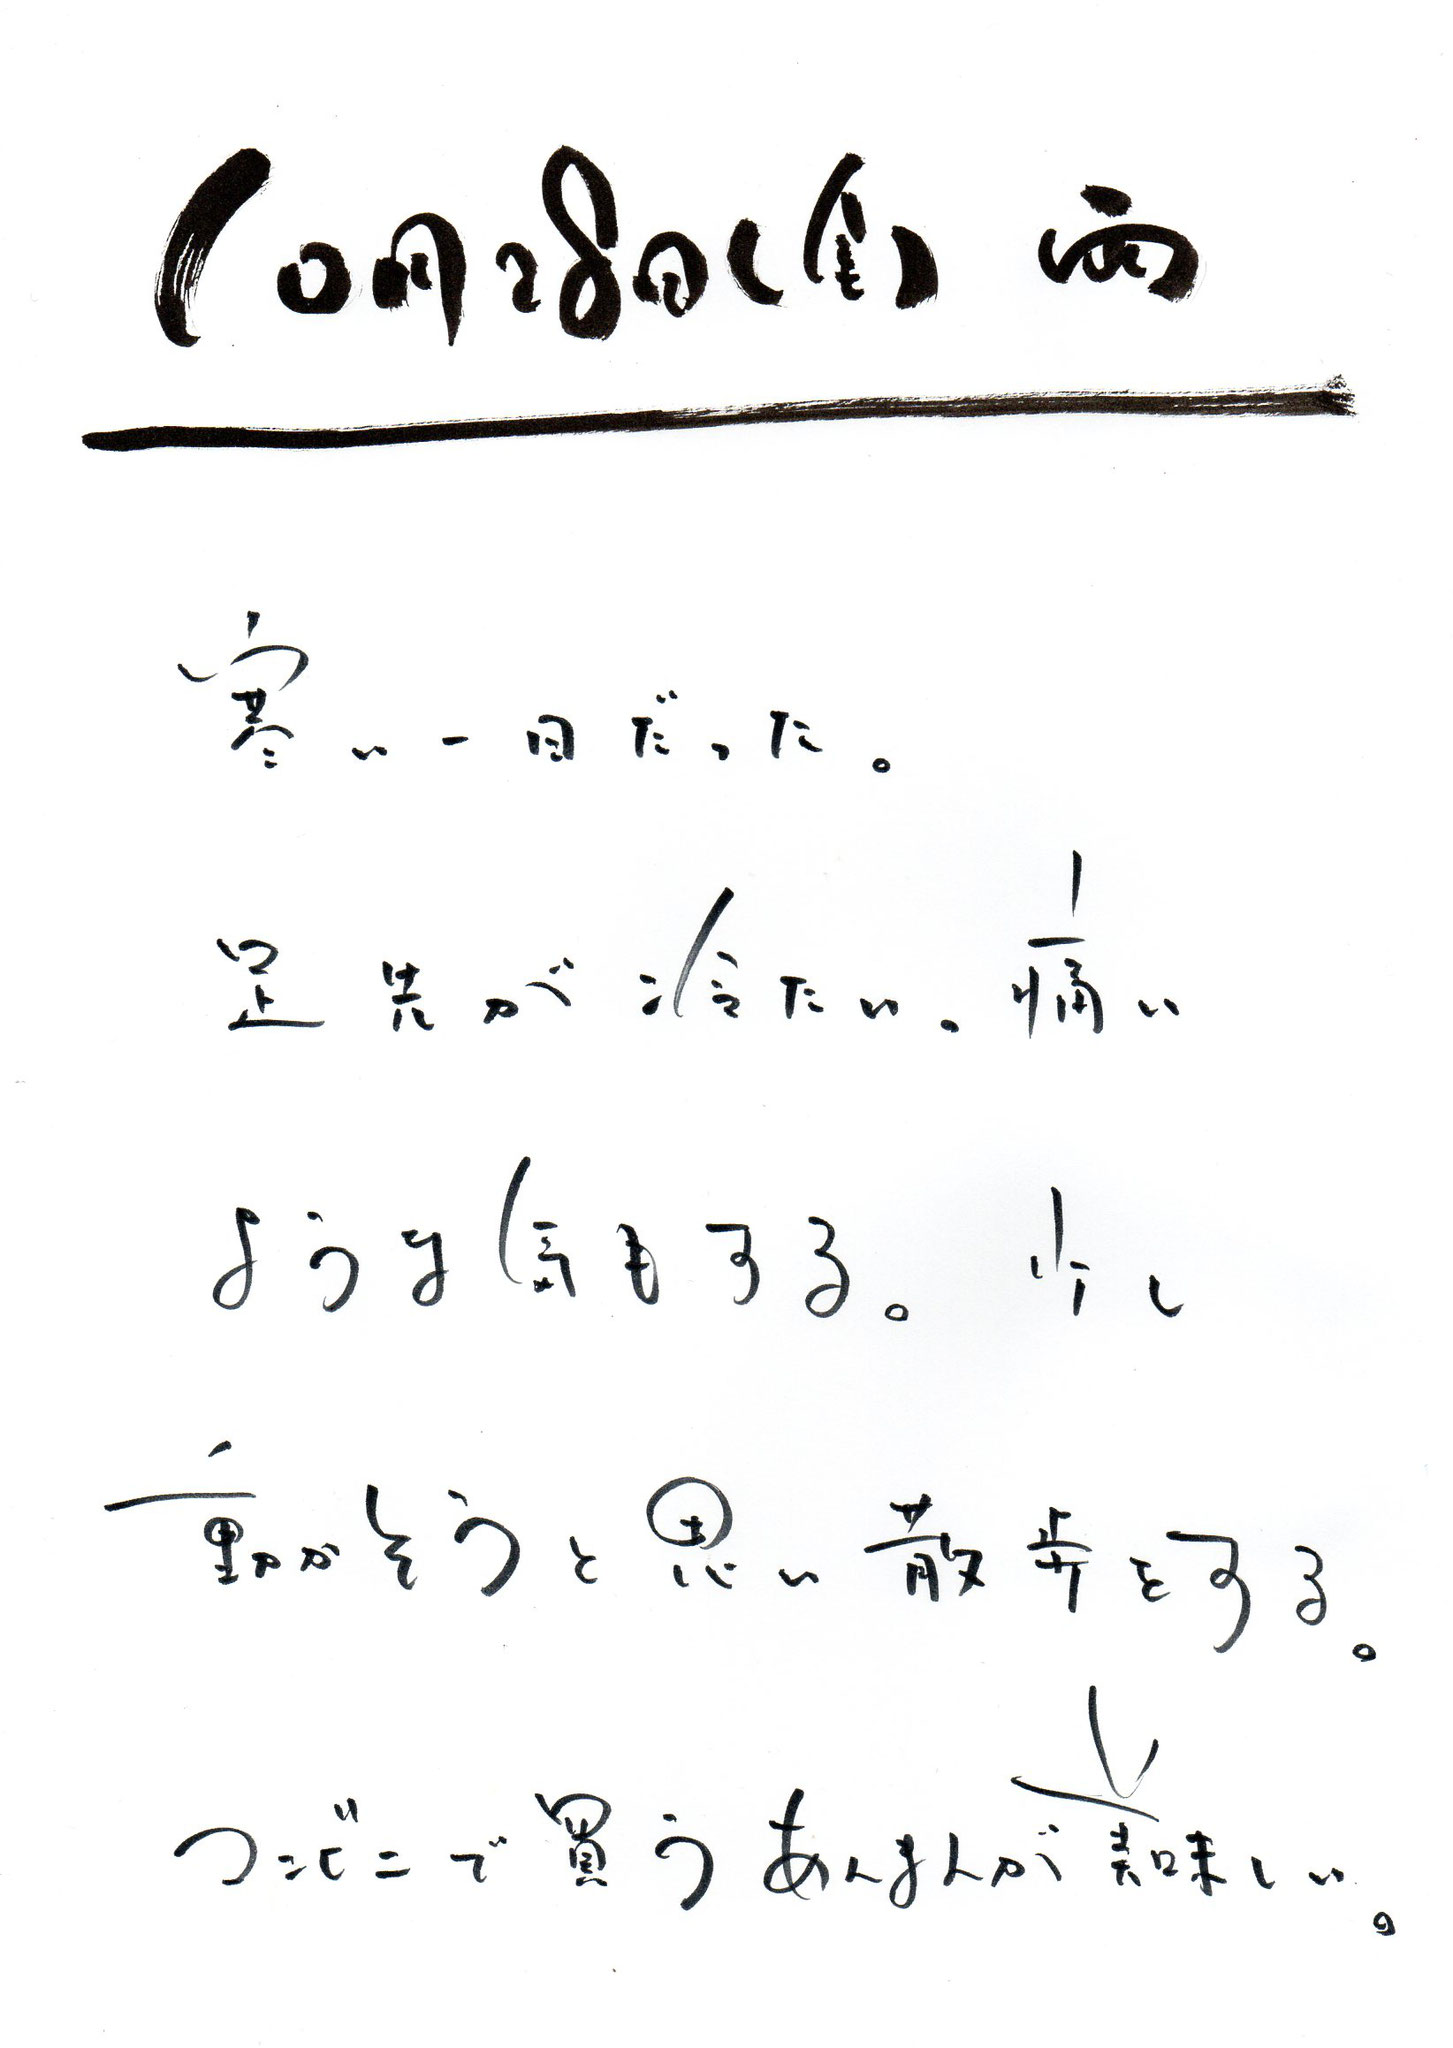 10月28日(金) 雨
寒い一日だった。
足先が冷たい。痛い
ような気もする。少し
動かそうと思い散歩をする。
コンビニで買うあんまんが美味しい。